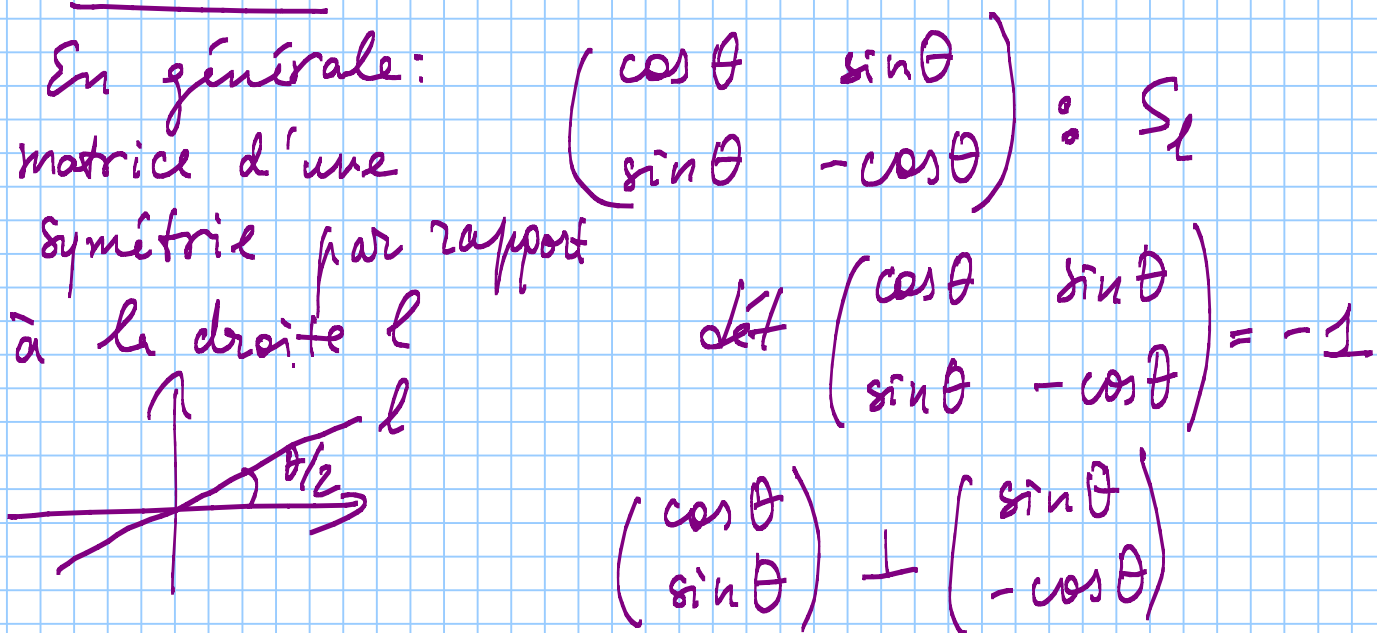 En générale:
matrice d'une
symétrie par rapport
à la droite l
( cos θ  sin θ
sin θ  -cos θ ) : S_l
dét ( cos θ  sin θ
sin θ  - cos θ ) = -1
l
θ/2
( cos θ
sin θ ) ⊥ ( sin θ
- cos θ )